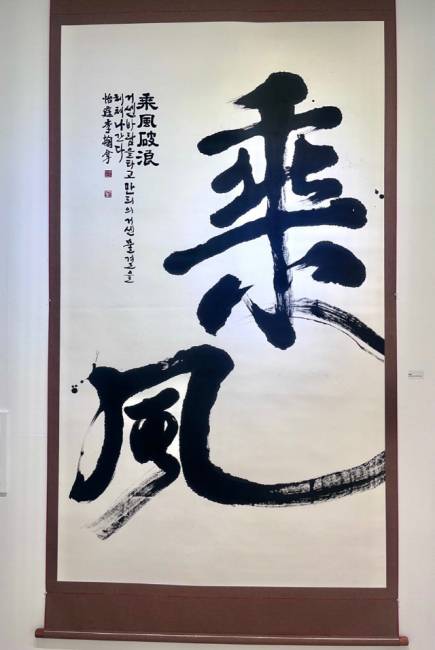 乘
風
乘風破浪
거센바람을타고만리의거센물결을
헤쳐나간다